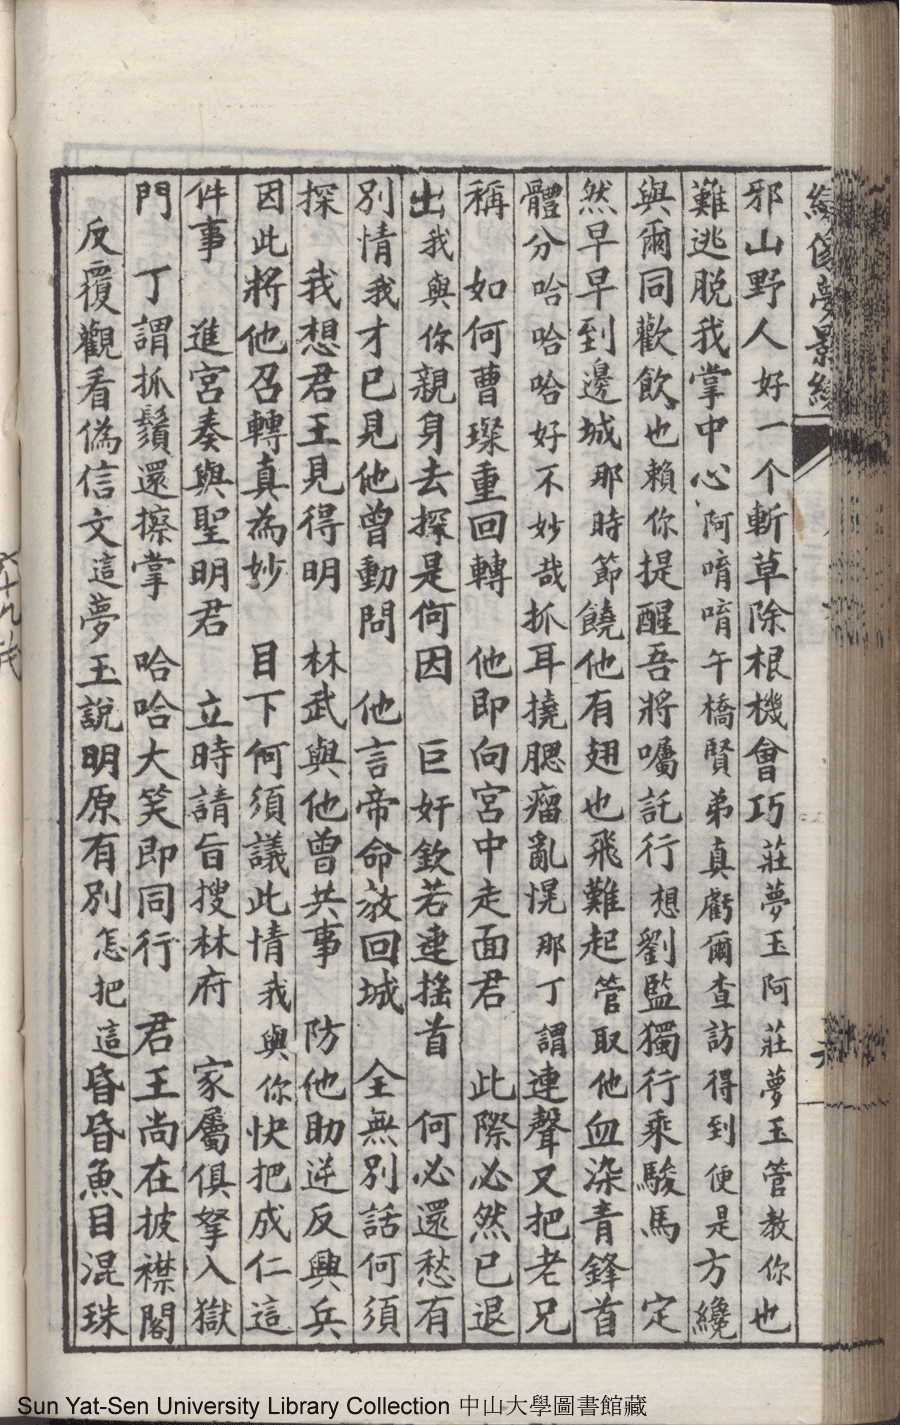 繡像夢影緣
邪山野人好一个斬草除根機會巧莊夢玉阿莊夢玉管教你也
難逃脫我掌中心阿唷唷午橋賢弟真虧爾查訪得到便是方纔
與爾同歡飲也賴你提醒吾將囑託行想劉監獨行乘駿馬 定
然早早到邊城那時節饒他有翅也飛難起管取他血染青鋒首
體分哈哈哈好不妙哉抓耳撓腮瘤亂愰那丁謂連聲又把老兄
稱 如何曹璨重回轉 他即向宮中走面君 此際必然已退
出我與你親身去探是何因 巨奸欽若連搖首 何必還愁有
別情我才已見他曾動問 他言帝命放回城 全無別話何須
探 我想君王見得明 林武與他曾共事 防他助逆反興兵
因此將他召轉真為妙 目下何須議此情我與你快把成仁這
件事 進宮奏與聖明君 立時請旨搜林府 家屬俱拏入獄
門 丁謂抓鬚還擦掌 哈哈大笑即同行 君王尚在披襟閣
反覆觀看偽信文這夢玉說明原有別怎把這昏昏魚目混珠
六十九
Sun Yat-Sen University Library Collection 中山大學圖書館藏